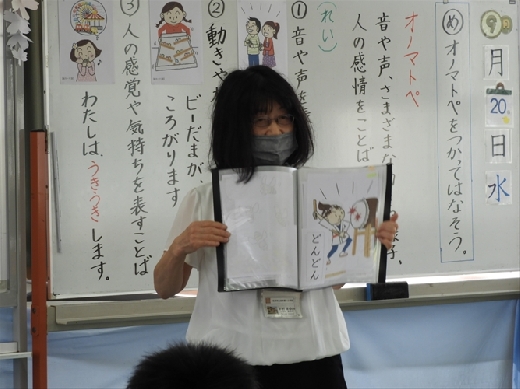 9月20日水
めオノマトペをつかってはなそう。
オノマトペ
音や声、さまざまな
人の感情をことば
ます。
(れい)
①音や声を
②動きや
ビーだまが
ころがります
③人の感覚や気持ちを表すことば
わたしは、うきうきします。
どんどん